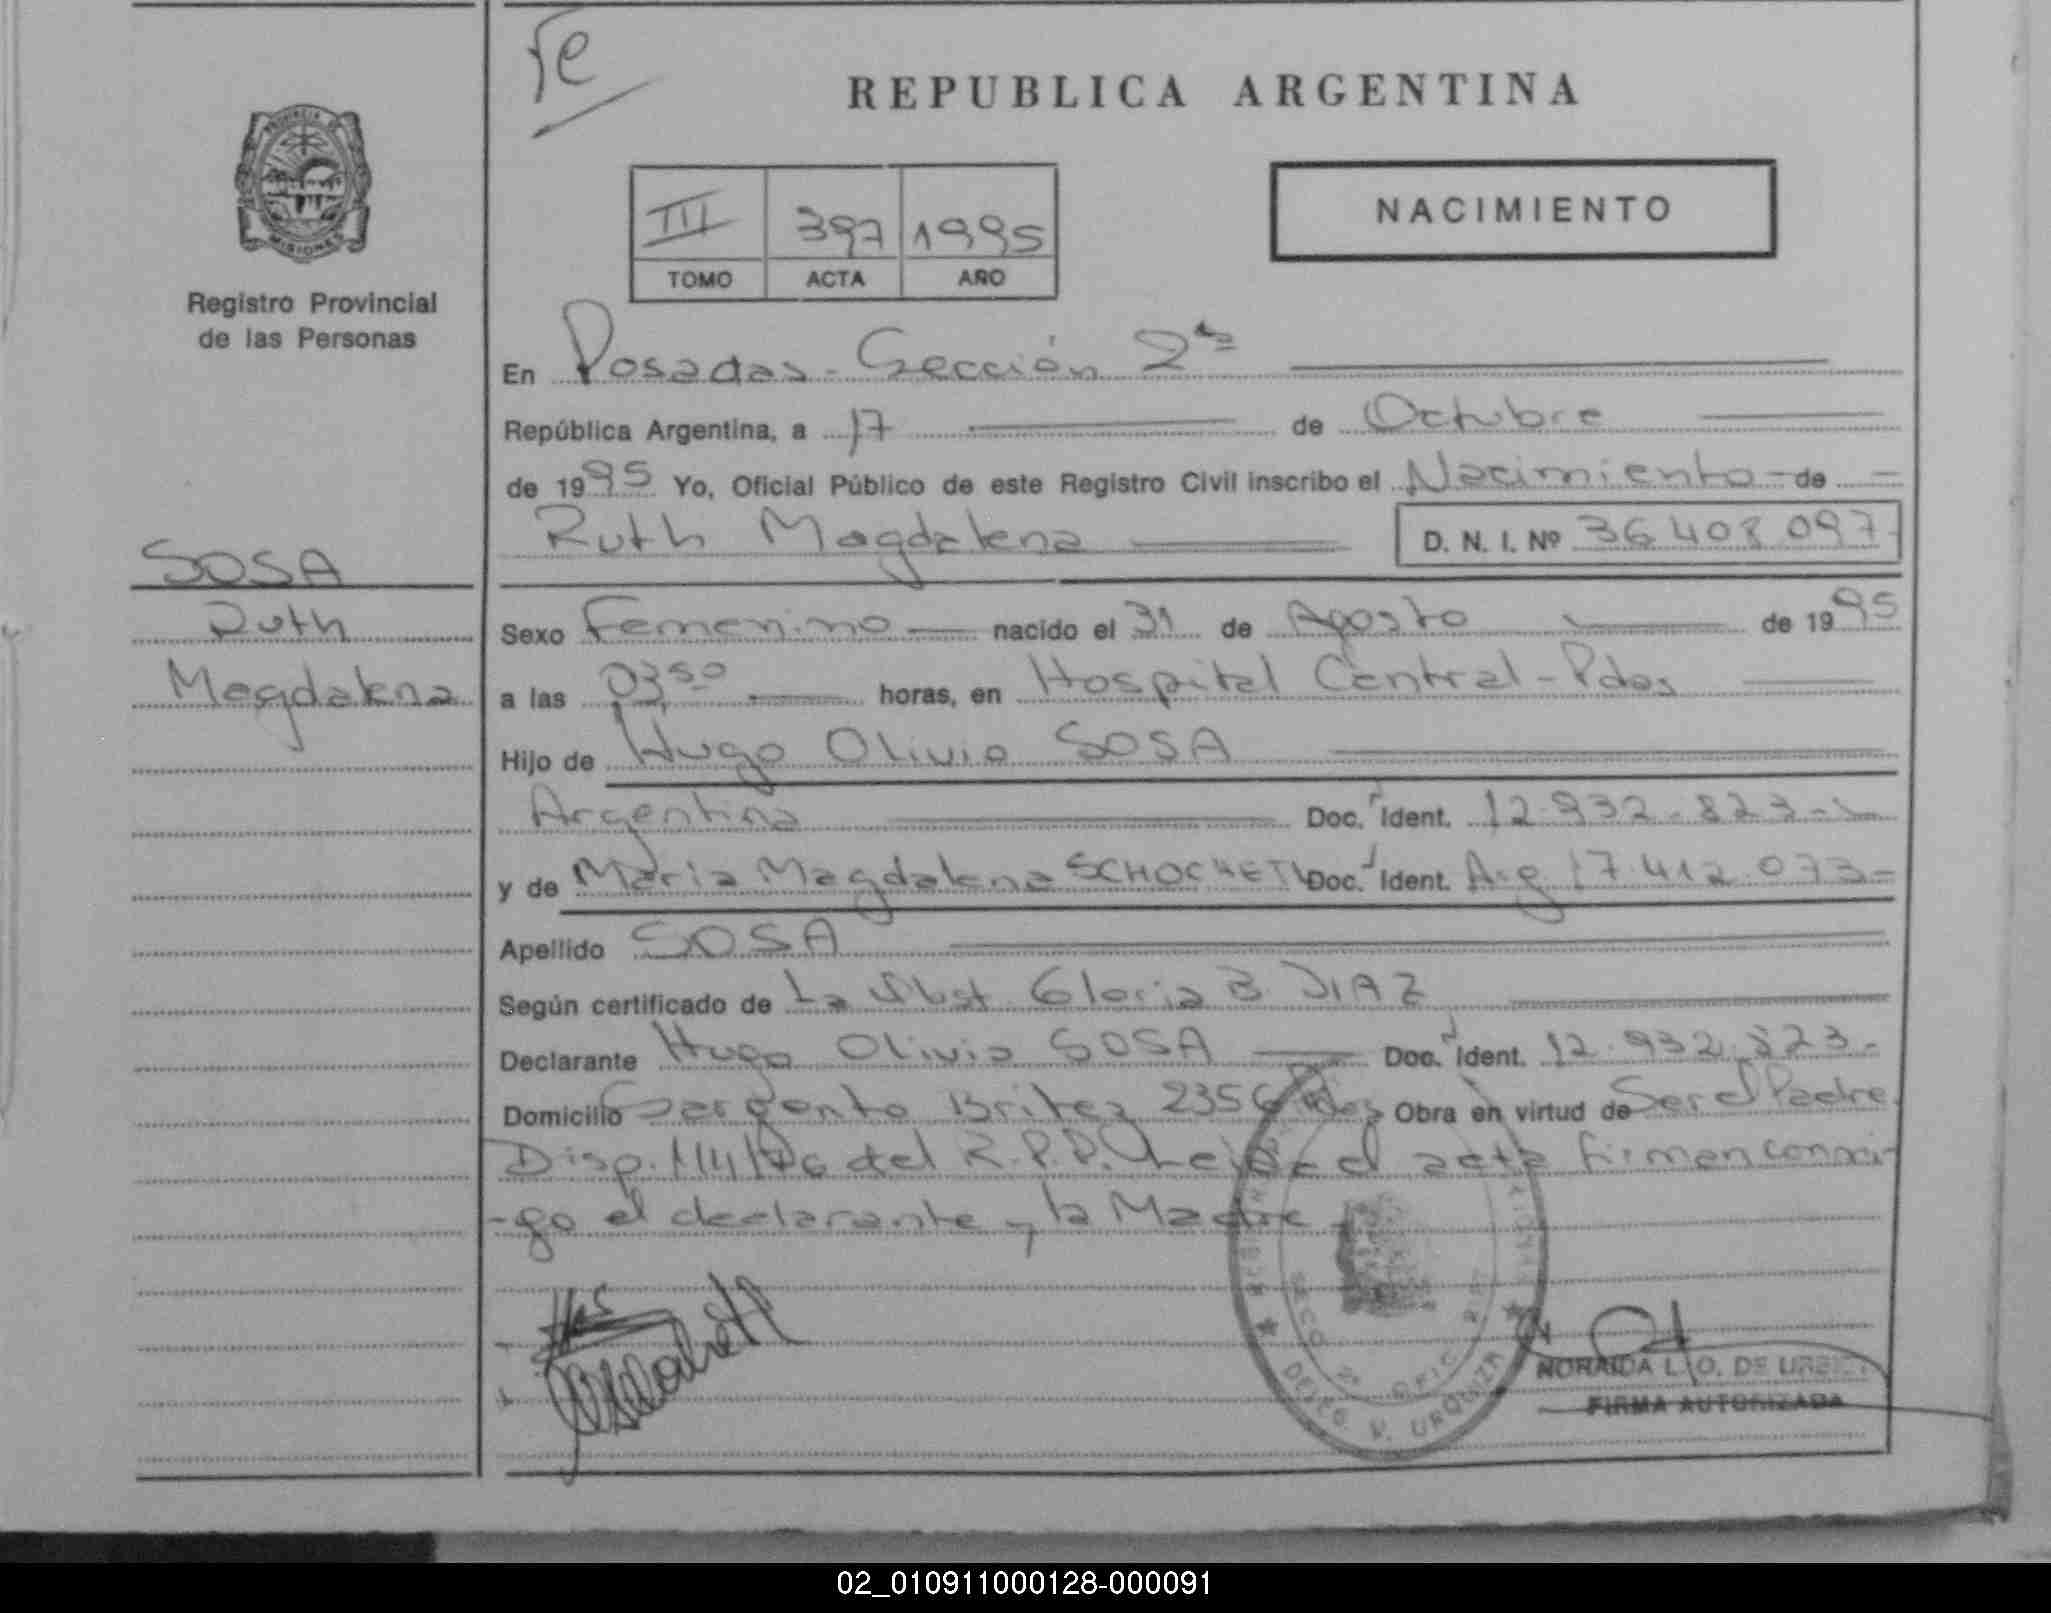 fe
REPUBLICA ARGENTINA
PROVINCIA DE
MISIONES
Registro Provincial
de las Personas
III 397 1995
TOMO ACTA AÑO
NACIMIENTO
En Posadas - Sección 2da
República Argentina, a 17 de Octubre
de 1995 Yo, Oficial Público de este Registro Civil inscribo el Nacimiento de
Ruth Magdalena D. N. I. Nº 36 408 097
SOSA
Ruth
Magdalena
Sexo Femenino nacido el 31 de Agosto de 1995
a las 03,50 horas, en Hospital Central - Pdas
Hijo de Hugo Olivio SOSA
Argentina Doc. Ident. 12.932.823-
y de Maria Magdalena Doc. Ident. Arg 17.412.073-
Apellido SOSA
Según certificado de La Obst. Gloria B. DIAZ
Declarante Hugo Olivio SOSA Doc. Ident. 12.932.823-
Domicilio Sargento Britez 2356 Pdas Obra en virtud de Ser el Padre
Disp. del R.P.P. Leída el acta firman conmi-
-go el declarante y la Madre
DELEG. V. URQUIZA
NORAIDA L. O. DE
FIRMA AUTORIZADA
02_010911000128-000091